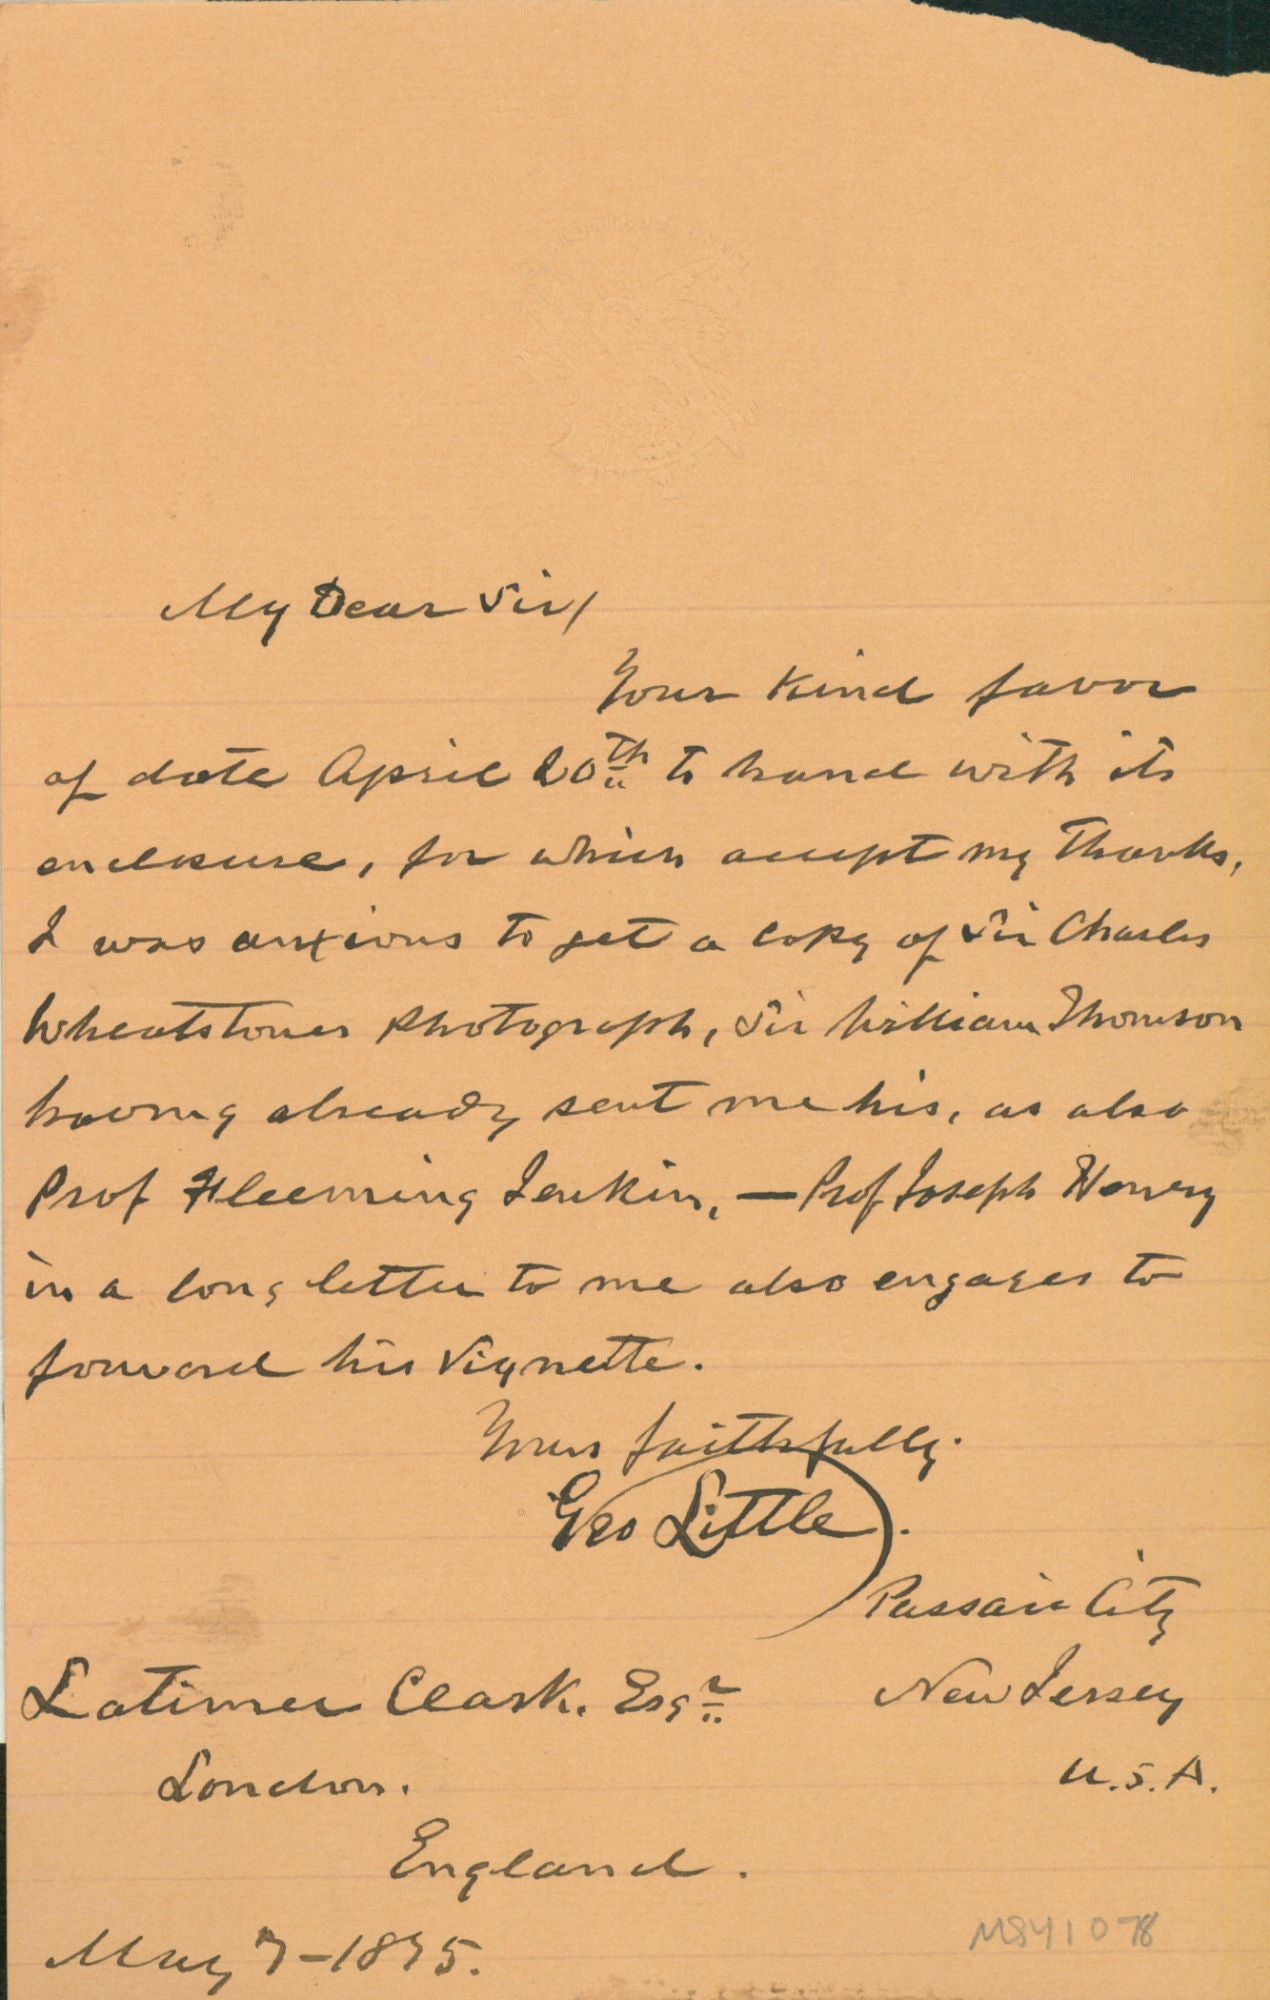 My Dear Sir/
Your kind favor
of date April 20th to hand with its
enclosure, for which accept my thanks,
I was anxious to get a copy of Sir Charles
Wheatstones Photograph, Sir William Thomson
having already sent me his, as also
Prof Fleeming Jenkin, — Prof Joseph Henry
in a long letter to me also engages to
forward his Vignette.
Yours faithfully.
Geo Little.
Passaic City
New Jersey
U.S.A.
Latimer Clark. Esqr
London.
England.
May 7-1875.
MS41078